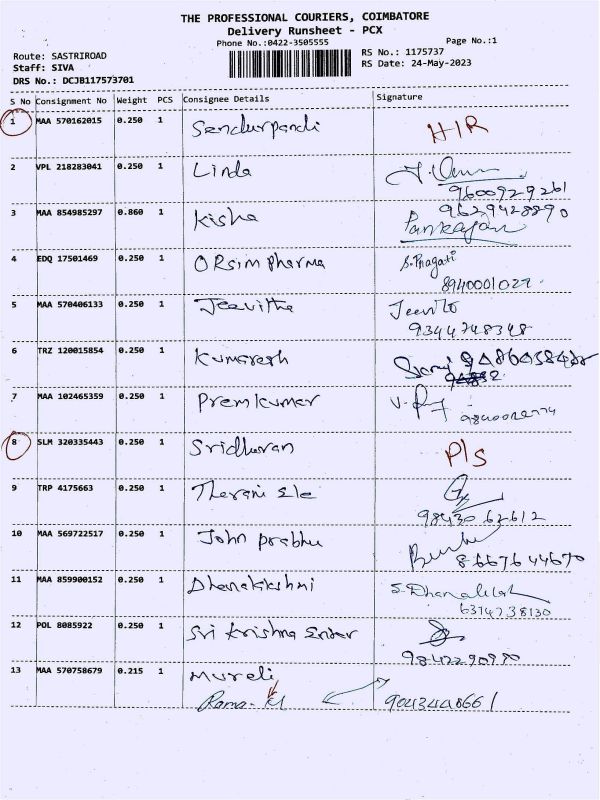 THE PROFESSIONAL COURIERS, COIMBATORE
Delivery Runsheet - PCX
Phone No.:0422-3505555
Page No.:1
Route: SASTRIROAD
RS No.: 1175737
Staff: SIVA
RS Date: 24-May-2023
DRS No.: DCJB117573701
S No Consignment No Weight PCS Consignee Details Signature
1 MAA 570162015 0.250 1 Sendurpandi H/R
2 VPL 218283041 0.250 1 Linda
9600929261
3 MAA 854985297 0.860 1 Kisha 9629428890
Pankajam
4 EDQ 17501469 0.250 1 ORsim pharma S.Pragati
8940001022
5 MAA 570406133 0.250 1 Jeevitha Jeevito
9344748348
6 TRZ 120015854 0.250 1 Kumaresh
7 MAA 102465359 0.250 1 Premkumar
8 SLM 320335443 0.250 1 Sridharan P/S
9 TRP 4175663 0.250 1 Therani Ele
98430 62612
10 MAA 569722517 0.250 1 John prabhu
8667644670
11 MAA 859900152 0.250 1 Dhanalakshmi S. Dhanalaksh
6374738130
12 POL 8085922 0.250 1 Sri Krishna Enter
9842290990
13 MAA 570758679 0.215 1 Murali
Rama- 9043448661